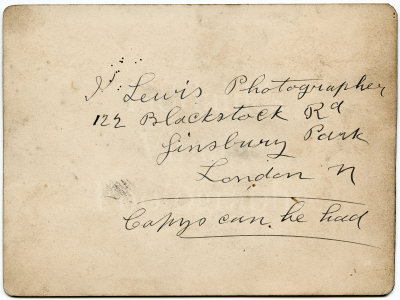 J. Lewis Photographer
122 Blackstock Rd
Finsbury Park
London N
Copys can be had